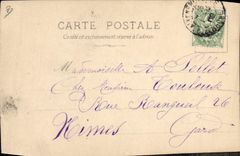 CARTE POSTALE
Ce côté est exclusivement réservé à l'adresse
Mademoiselle A. Pellet
Chez Madame Toulouse
Rue Rangueil 26
Nimes
Gard